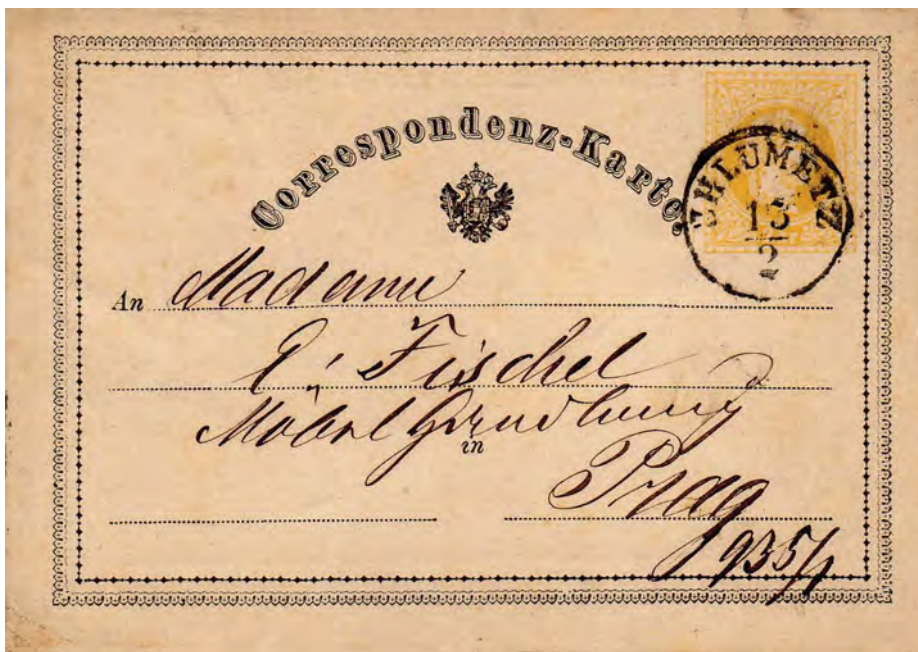 Correspondenz-Karte.
CHLUMETZ
13
2
An Madame
Fischel
Möbel Handlung
in
Prag
935/1